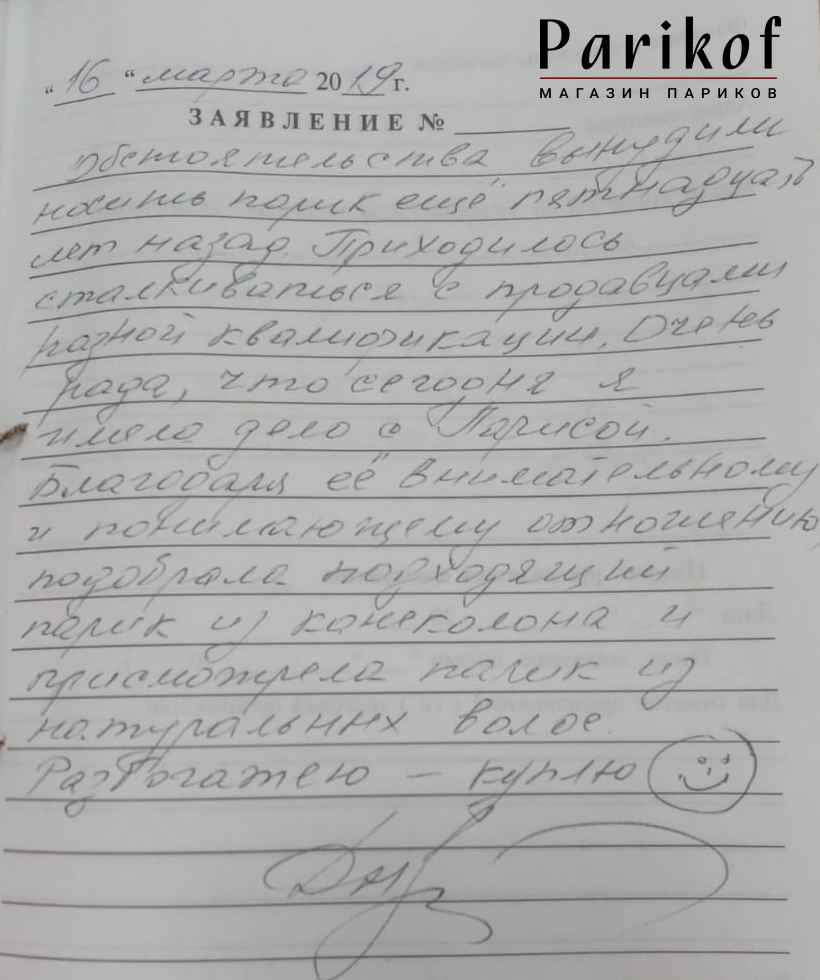 Parikof
МАГАЗИН ПАРИКОВ
„ 16 “ марта 2019 г.
ЗАЯВЛЕНИЕ №
Обстоятельства вынудили
носить парик ещё пятнадцать
лет назад. Приходилось
сталкиваться с продавцами
разной квалификации. Очень
рада, что сегодня я
имела дело с Ларисой.
Благодаря её внимательному
и понимающему отношению
подобрала подходящий
парик из канеколона и
присмотрела парик из
натуральных волос.
Разбогатею – куплю